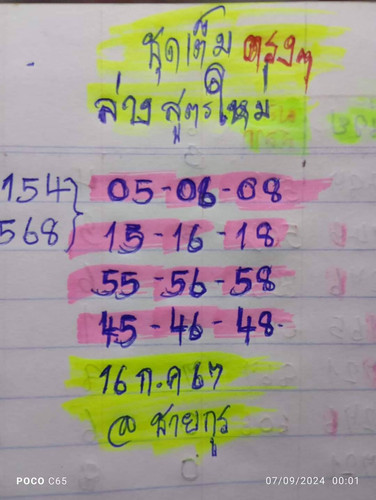 ชุดเต็ม ตรงๆ
ล่าง สูตรใหม่
154} 05-06-08
568} 15-16-18
55-56-58
45-46-48
16 ก.ค 67
@ ชายกูร
POCO C65
07/09/2024 00:01